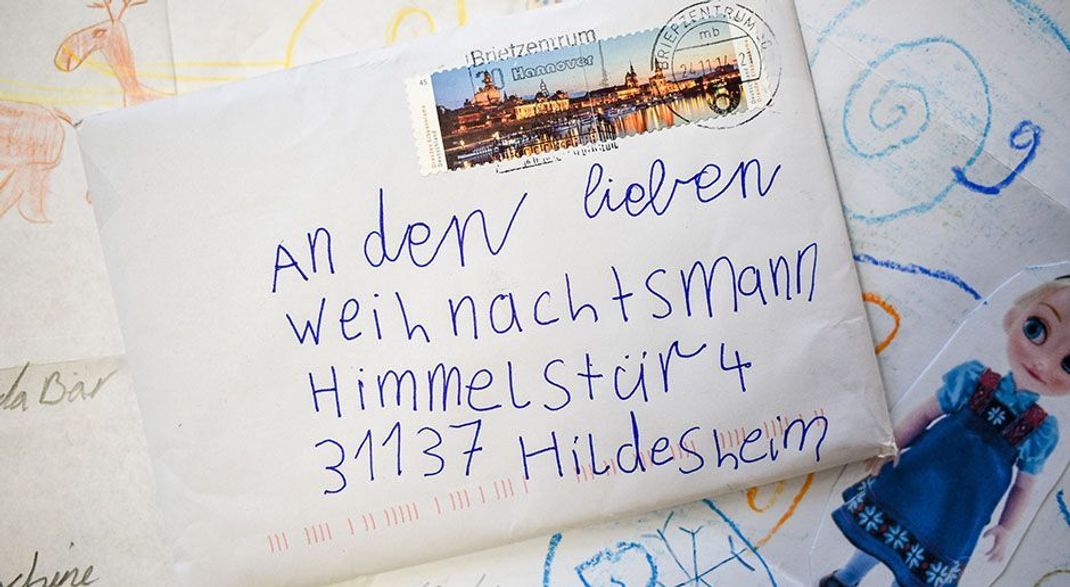 Briefzentrum
Hannover
BRIEFZENTRUM
mb
24.11.14
21
45
An den lieben
Weihnachtsmann
Himmelstür 4
31137 Hildesheim
da Bär